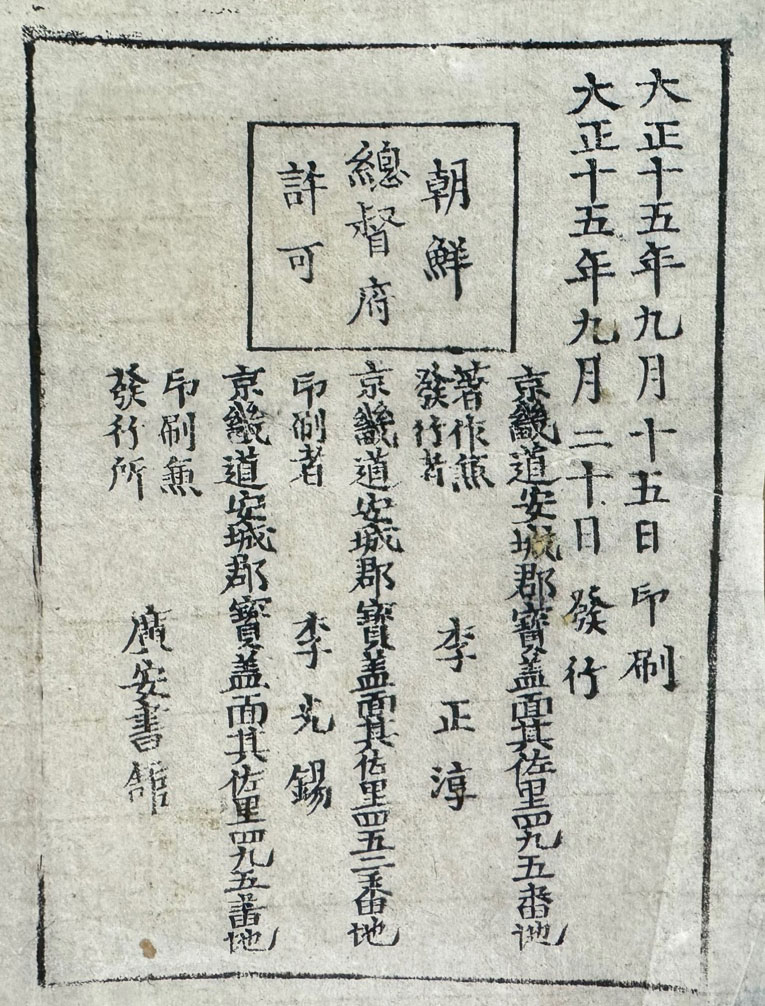 大正十五年九月十五日印刷
大正十五年九月二十日發行
朝鮮
總督府
許可
京畿道安城郡寶盖面其佐里四九五番地
著作兼
發行者
李正淳
京畿道安城郡寶盖面其佐里四五二番地
印刷者
李光錫
京畿道安城郡寶盖面其佐里四九五番地
印刷兼
發行所
廣安書舘